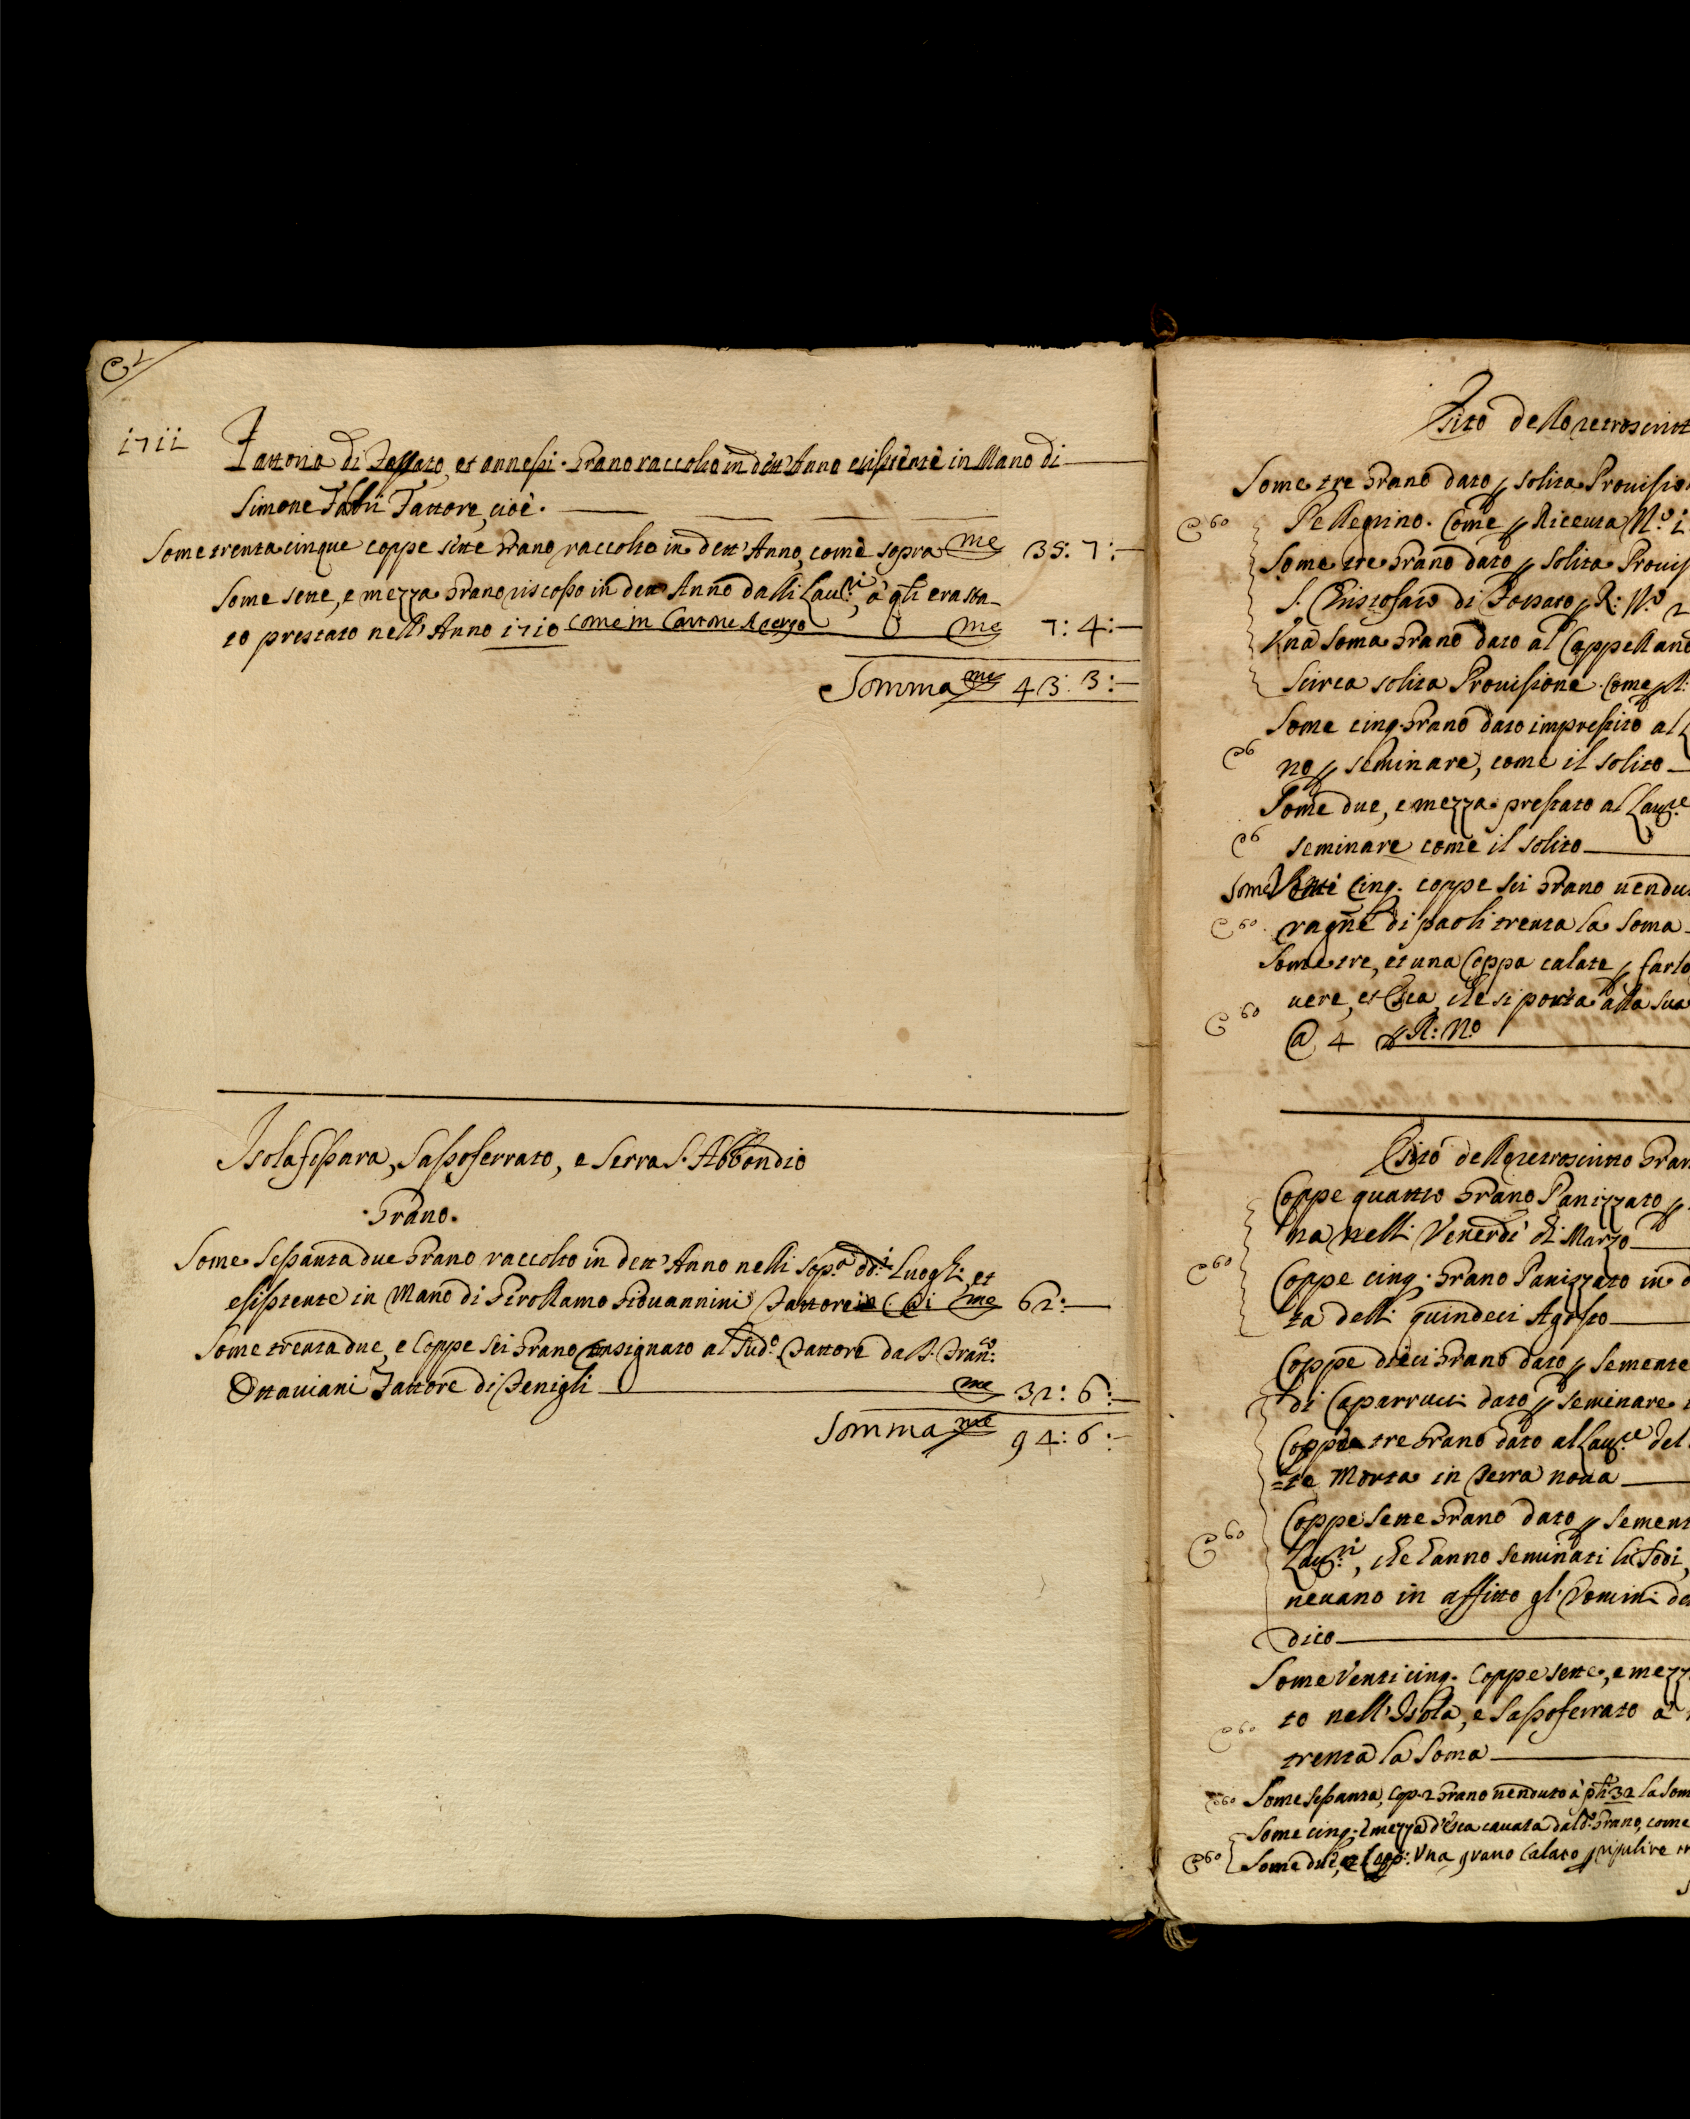 C 2
1711
Fattoria di Fossato, et annessi. Grano raccolto in dett'Anno esistente in Mano di
Simone Fabri Fattore, cioè.
Some trenta cinque coppe sette Grano raccolto in dett'Anno, come sopra me 35: 7:—
Some sette, e mezza Grano riscosso in dett'Anno dalli Lau:ri, à q.li era sta-
to prestato nell'Anno 1710 come in Cartone A tergo me 7: 4:—
Somma me 43: 3:—
Isola fossara, Sassoferrato, e Serra S. Abbondio
Grano.
Some Sessanta due Grano raccolto in dett'Anno nelli sop.a dd.i Luoghi et
esistente in Mano di Girollamo Giovannini Fattore me 62:—
Some trenta due, e Coppe sei Grano consignato al Sud.o Fattore da Fran.co
Ottaviani Fattore di Fenigli me 32: 6:—
Somma me 94: 6:—
Esito dell retroscritt
Some tre Grano dato p solita Provisio
C 60 Pellegrino. Come p Riceuta N.o 1
Some tre Grano dato p solita Provis
S. Cristofaro di Fossato p R: N.o 2
Una Soma Grano dato al Cappellano
Scirca solita Provisione. Come p R:
Some cinq. Grano dato imprestito al
C 6 no p seminare, come il solito
Some due, e mezza prestato al Lau:re
C 6 seminare come il solito
Some Venti Cinq. coppe sei Grano uendu
C 60 ragne di paoli trenta la Soma
Some tre, et una Coppa calate p farlo
C 60 uere, et Esca, che si porta alla sua
@ 4 p R: N.o
Esito dell retroscritto Gran
Coppe quattro Grano Panizzato p
na nelli Venerdì di Marzo
C 60 Coppe cinq. Grano Panizzato in
ta delli quindeci Agosto
Coppe dieci Grano dato p Semente
di Caparrucci dato p seminare
Coppe tre Grano dato al Lau:re del
=te Morta in Serra noua
Coppe sette Grano dato p Sement
C 60 Lau:ri, che hanno seminati li Sodi,
neuano in affitto gl'Uomini de
dico
Some Venti cinq. Coppe sette, e mezz
C 60 to nell'Isola, e Sassoferrato à
trenta la Soma
C 60 Some Sessanta, Cop. 2 Grano uenduto à pli 32 la Som
Some cinq. e mezza d'Esca cauata dal d.o Grano, come
C 60 Some due, e Copp: Una grano Calato p ripulire